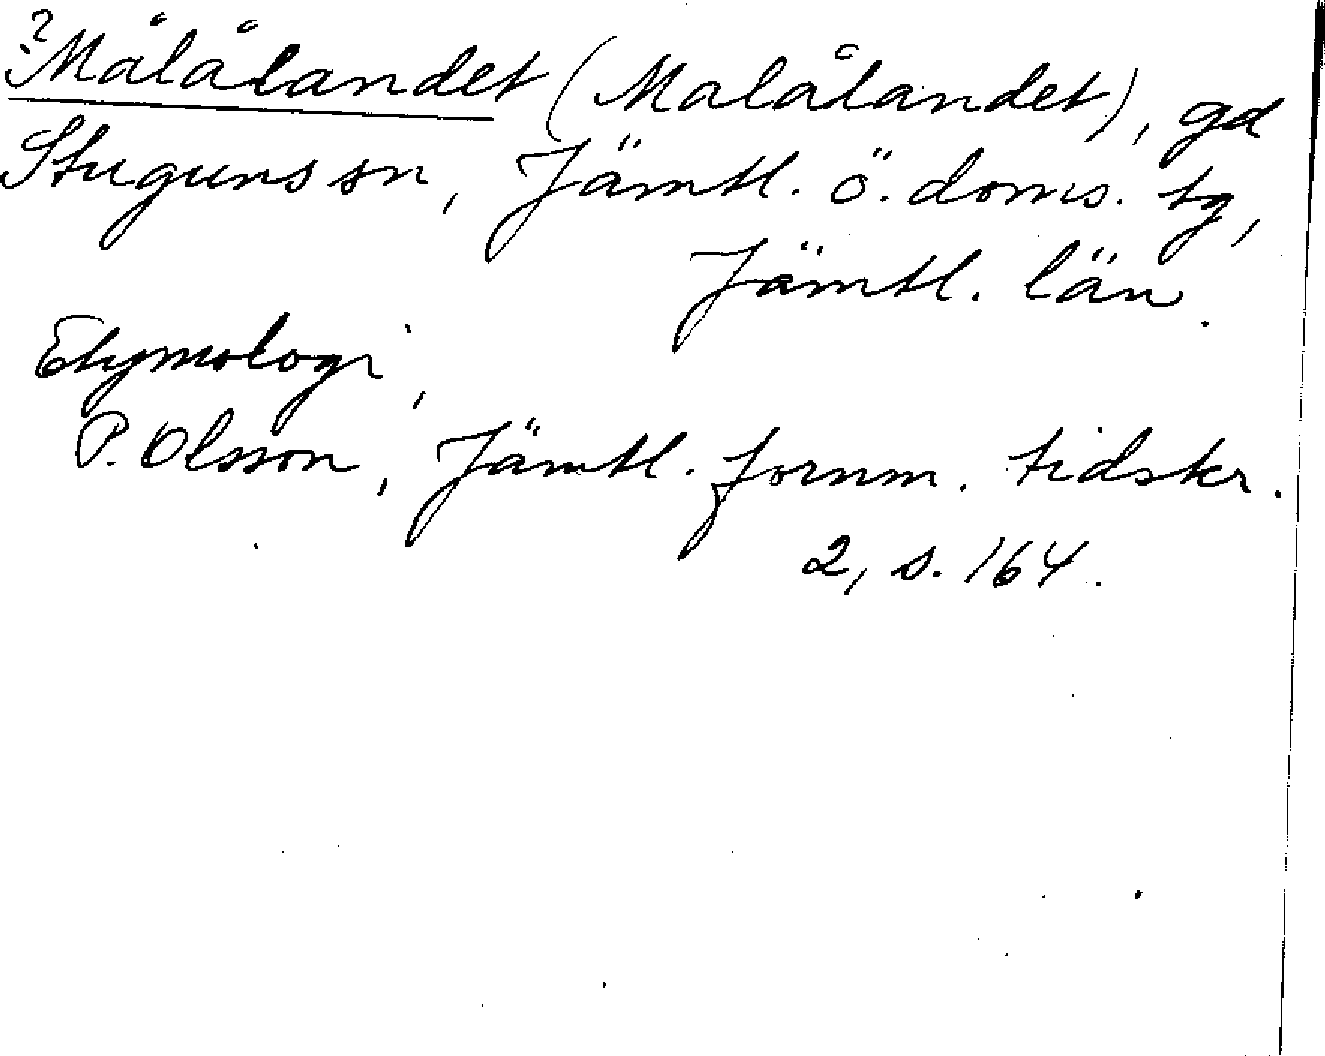 ? Målålandet (Malålandet), gd
Stuguns sn, Jämtl. ö. doms. tg,
Jämtl. län.
Etymologi,
P. Olsson, Jämtl. fornm. tidskr.
2, s. 164.